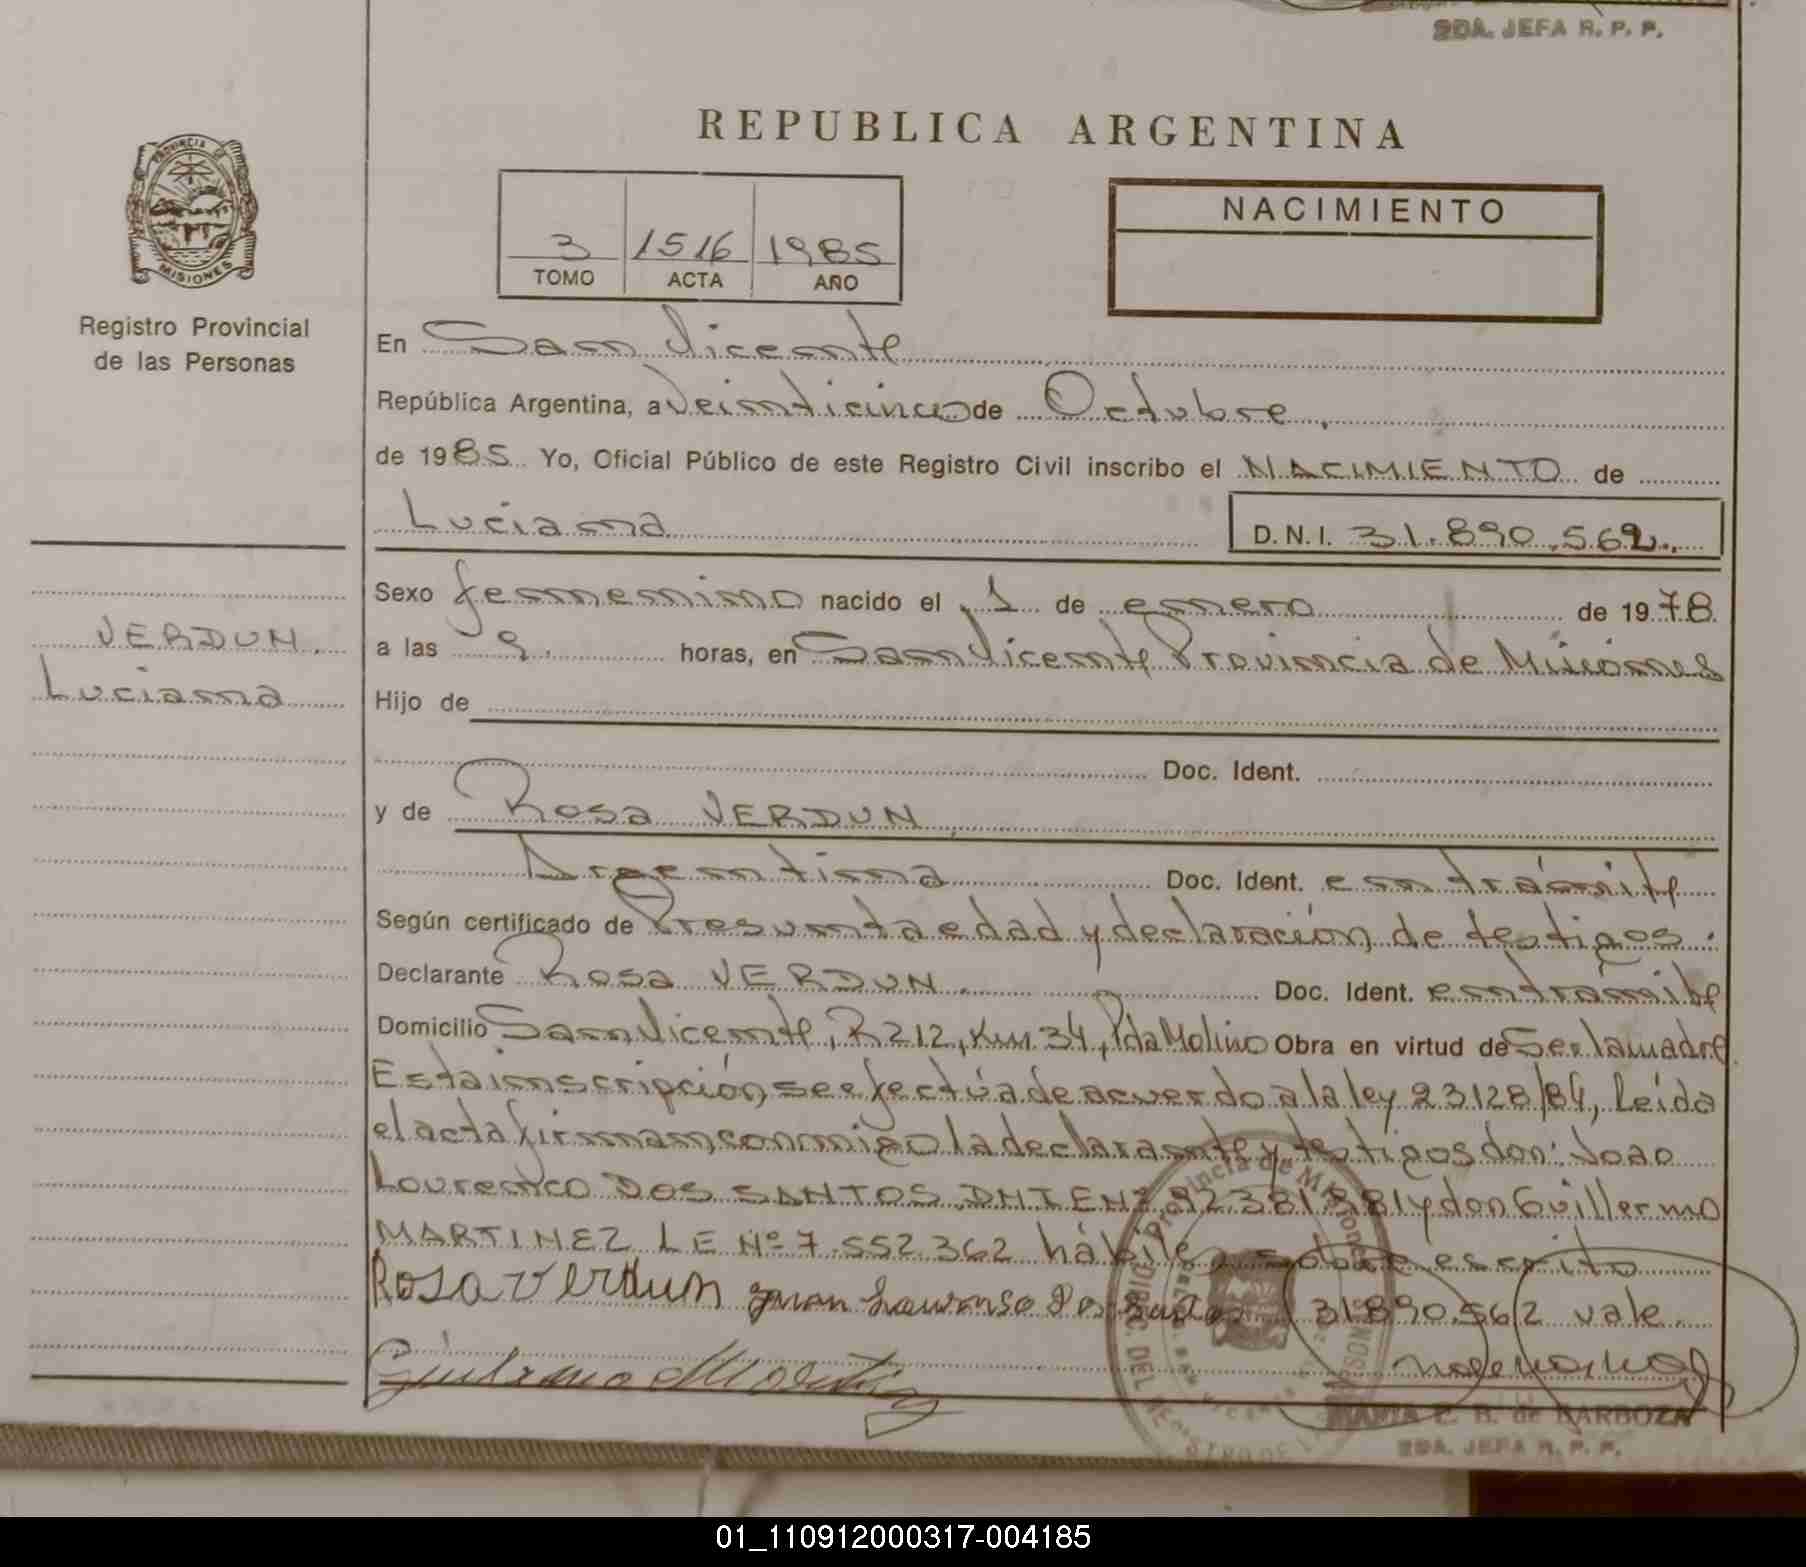 2DA. JEFA R. P. P.
REPUBLICA ARGENTINA
PROVINCIA DE
MISIONES
Registro Provincial
de las Personas
3 1516 1985
TOMO ACTA AÑO
NACIMIENTO
En San Vicente
República Argentina, a Veinticinco de Octubre,
de 1985. Yo, Oficial Público de este Registro Civil inscribo el NACIMIENTO de
Luciana D.N.I. 31.890.562.
Sexo femenino nacido el 1 de enero de 1978.
VERDUN.
Luciana
a las 9. horas, en San Vicente Provincia de Misiones
Hijo de
Doc. Ident.
y de Rosa VERDUN,
Argentina Doc. Ident. en trámite
Según certificado de Presunta edad y declaración de testigos.
Declarante Rosa VERDUN. Doc. Ident. en trámite
Domicilio San Vicente, R 212, Km 34, Pda Molino Obra en virtud de Ser la madre
Esta inscripción se efectúa de acuerdo a la ley 23128/84, Leída
el acta firman conmigo la declarante y testigos don: Joao
Lourenco DOS SANTOS, DNI EN 92381881 y don Guillermo
MARTINEZ LE Nº 7.552.362 hábiles sobre escrito
Rosa Verdun dos Santos 31890.562 vale.
Guillermo Martinez
Provincia de Misiones
MARIA E. B. de BARBOZA
2DA. JEFA R. P. P.
01_110912000317-004185